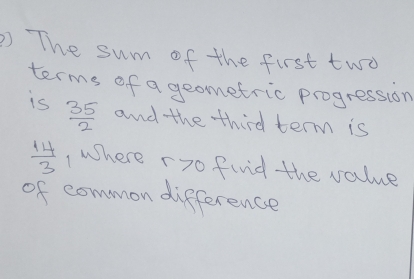 2) The sum of the first two
terms of a geometric progression
is 35/2 and the third term is
14/3, where r>0 find the value
of common difference